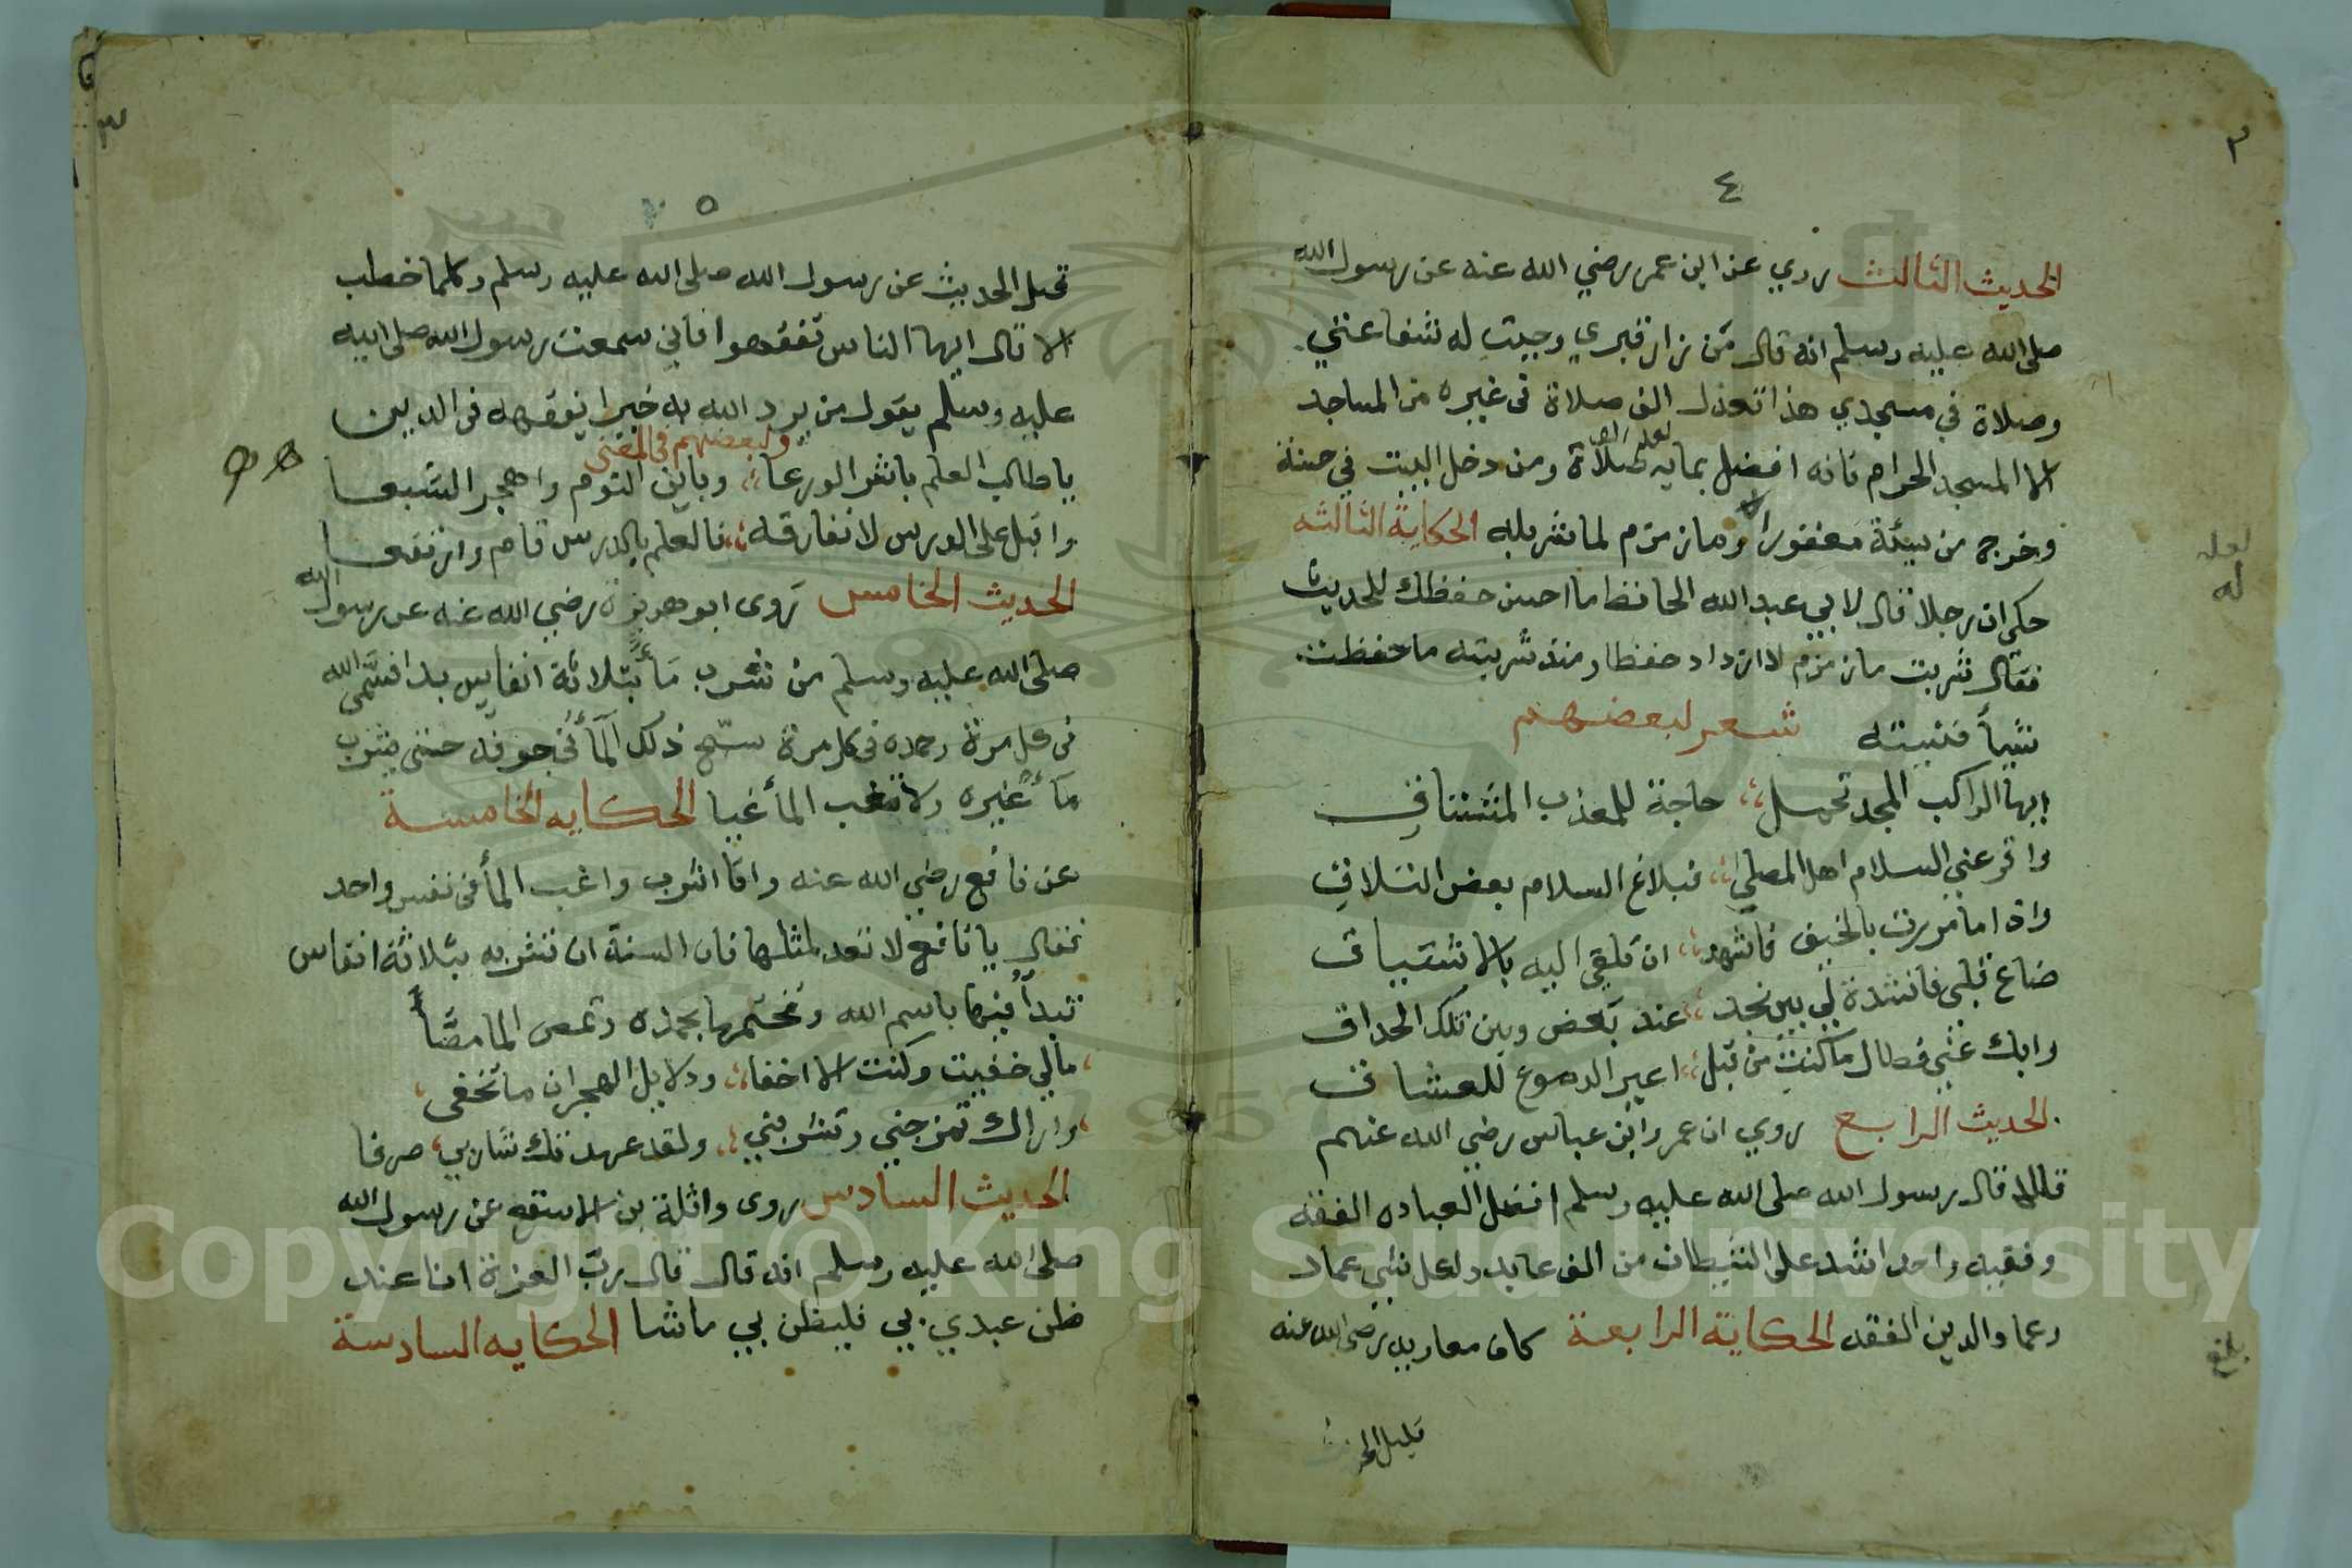 ٤
الحديث الثالث روي عن ابن عمر رضي الله عنه عن رسول الله
صلى الله عليه وسلم انه قال من زار قبري وجبت له شفاعتي
وصلاة في مسجدي هذا تعدل الف صلاة في غيره من المساجد
الا المسجد الحرام فانه افضل بمايه صلاة ومن دخل البيت في حسنة
لعله الف
وخرج من سيئة مغفورا وماء زمزم لما شرب له الحكاية الثالثه
لعله
له
حكي ان رجلا قال لابي عبد الله الحافظ ما احسن حفظك للحديث
فقال شربت ماء زمزم لازداد حفظا ومنذ شربته ما حفظت
شيأ فنسيته شعر لبعضهم
ايها الراكب المجد تحمل حاجة للمعذب المشتاق
واقر عني السلام اهل المصلى فبلاغ السلام بعض التلاق
واذا ما مررت بالخيف فاشهد ان قلبي اليه بالاشتياق
ضاع قلبي فانشده لي بين نجد عند بعض وبين تلك الحداق
وابك عني فطال ما كنت من قبل اعير الدموع للعشاق
الحديث الرابع روي ان عمر وابن عباس رضي الله عنهم
قالا قال رسول الله صلى الله عليه وسلم افضل العباده الفقه
وفقيه واحد اشد على الشيطان من الف عابد ولكل شي عماد
وعماد الدين الفقه الحكاية الرابعة كان معاويه رضي الله عنه
بلغ
قليل الحديث
٥
قليل الحديث عن رسول الله صلى الله عليه وسلم وكلما خطب
الا قال ايها الناس تفقهوا فاني سمعت رسول الله صلى الله
عليه وسلم يقول من يرد الله به خيرا يفقهه في الدين
ولبعضهم في المعنى
يا طالب العلم باشر الورعا وباين النوم واهجر الشبعا
واقبل على الدرس لا تفارقه فالعلم بالدرس قام وارتفعا
الحديث الخامس روى ابو هريرة رضي الله عنه عن رسول الله
صلى الله عليه وسلم من شرب ماء بثلاثة انفاس بدا فسمى الله
في كل مرة وحمده في كل مرة سبح ذلك الماء في جوفه حتى يشرب
ماء غيره ولا تغب الماء غبا الحكايه الخامسة
عن نافع رضي الله عنه وانا اشرب واغب الماء في نفس واحد
فقال يا نافع لا تعد لمثلها فان السنة ان تشربه بثلاثة انفاس
تبدأ فيها باسم الله وتختمها بحمده وتمص الما مصا
مالي خفيت وكنت لا اخفا ودلايل الهجران ما تخفى
واراك تمزجني وتشربني ولقد عهدتك شاربي صرفا
الحديث السادس روى واثلة بن الاسقع عن رسول الله
صلى الله عليه وسلم انه قال قال رب العزة انا عند
ظن عبدي بي فليظن بي ماشا الحكايه السادسة
Copyright © King Saud University
1957